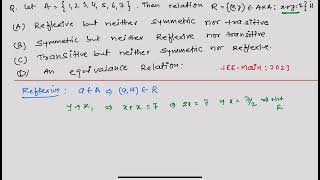 Q. Let A = {1, 2, 3, 4, 5, 6, 7}. Then relation R = {(x,y) ∈ A×A; x+y=7} is
(A) Reflexive but neither Symmetric nor transitive
(B) Symmetric but neither Reflexive nor transitive
(C) Transitive but neither Symmetric nor Reflexive.
(D) An equivalance Relation: JEE-Main; 2023
Reflexive: a∈A ⇒ (a,a) ∈ R
y→x, ⇒ x+x=7 ⇒ 2x=7 ⇒ x=7/2 ⇒ not R